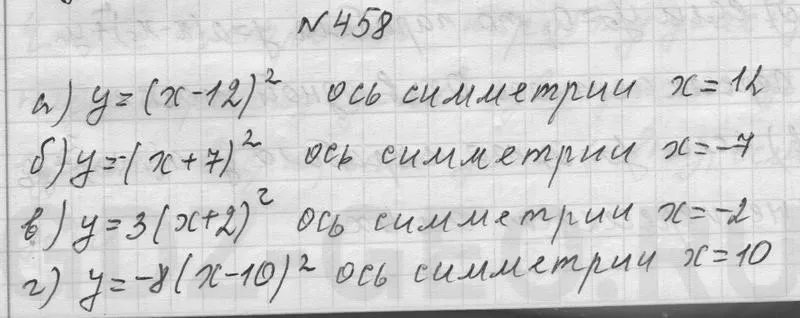 №458
а) y=(x-12)² ось симметрии x=12
б) y=-(x+7)² ось симметрии x=-7
в) y=3(x+2)² ось симметрии x=-2
г) y=-8(x-10)² ось симметрии x=10